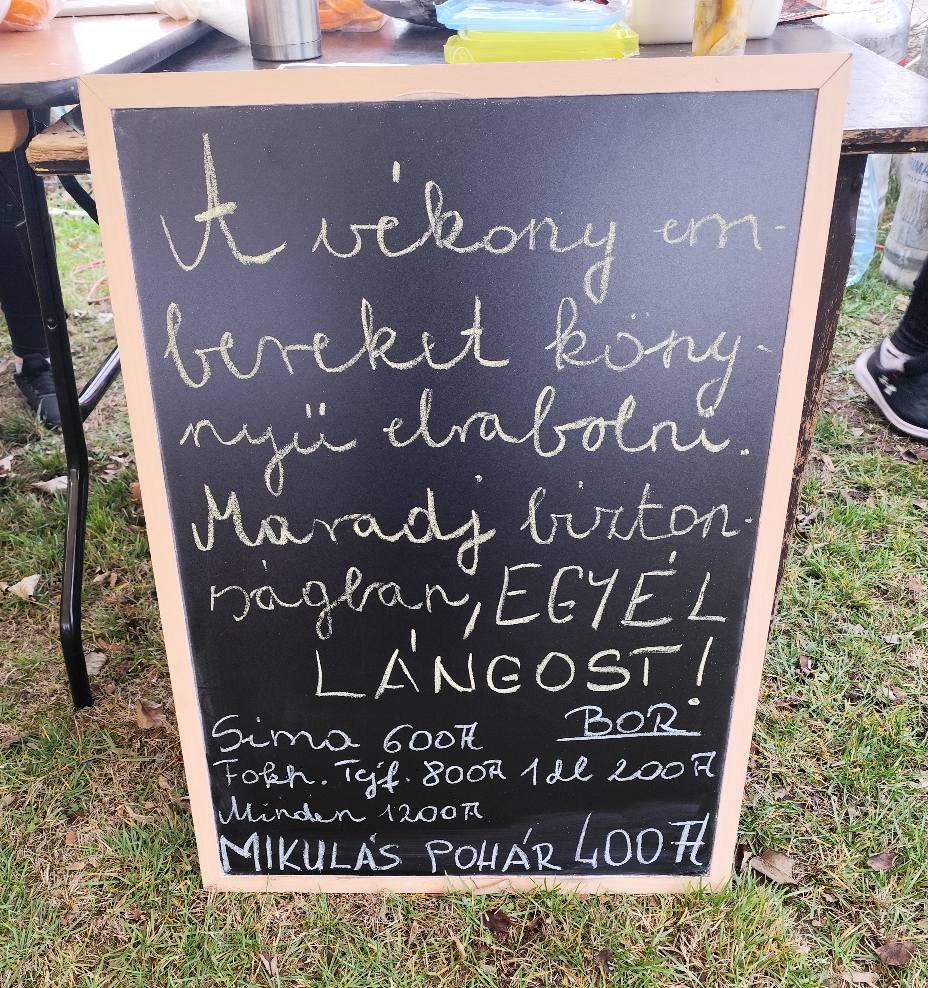 A vékony em-
bereket köny-
nyü elrabolni.
Maradj bizton-
ságban, EGYÉL
LÁNGOST!
Sima 600Ft
BOR
Fokh. Tejf. 800Ft 1dl 200Ft
Minden 1200Ft
MIKULÁS POHÁR 400Ft